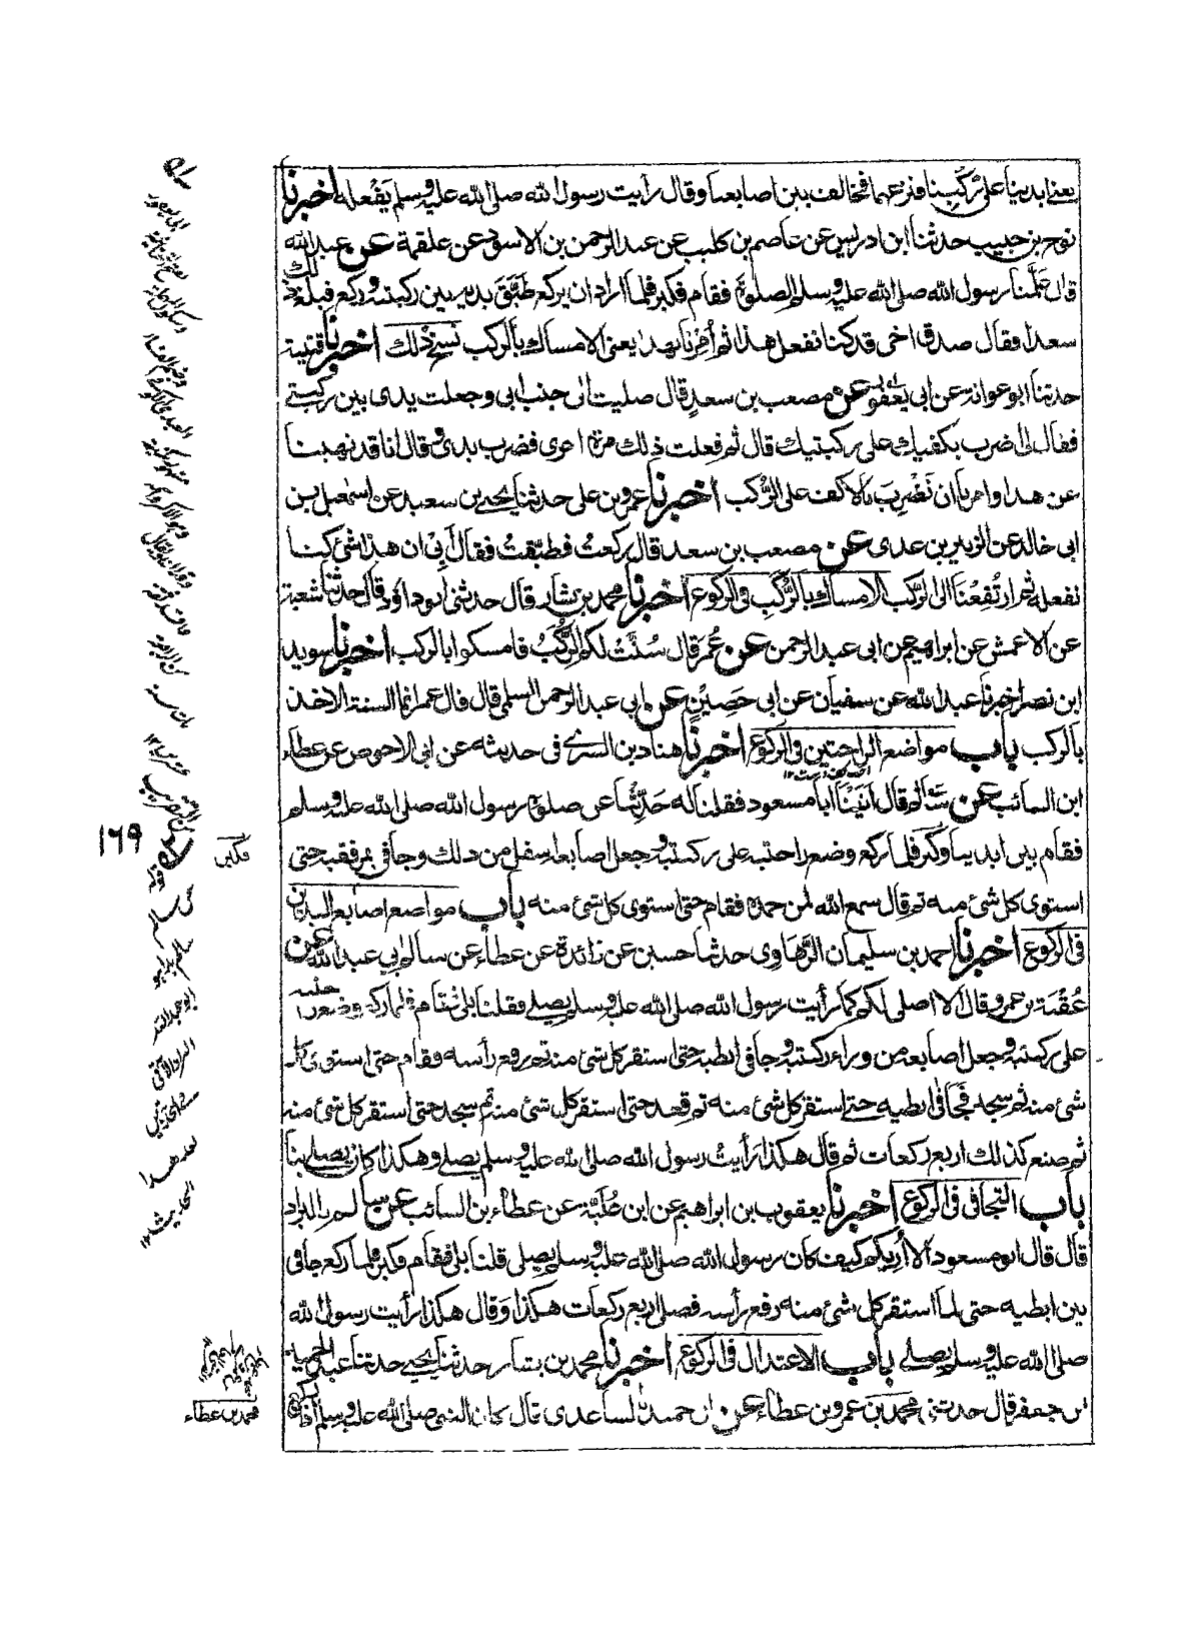 يعني ايدينا على ركبنا فنزعهما فخالف بين اصابعنا وقال رأيت رسول الله صلى الله عليه وسلم يفعله اخبرنا
نوح بن حبيب حدثنا ابن ادريس عن عاصم بن كليب عن عبد الرحمن بن الاسود عن علقمة عن عبد الله
قال علَّمنا رسول الله صلى الله عليه وسلم الصلوة فقام فكبر فلما اراد ان يركع طَبَّقَ يديه بين ركبتيه وركع فبلغ ذلك
سعدا فقال صدق اخي قد كنا نفعل هذا ثم اُمِرْنا بهذا يعني الامساك بالركب نسخ ذلك اخبرنا قتيبة
حدثنا ابو عوانة عن ابي يعفور عن مصعب بن سعد قال صليت الى جنب ابي وجعلت يدي بين ركبتي
فقال لي اضرب بكفيك على ركبتيك قال ثم فعلت ذلك مرة اخرى فضرب يدي وقال انا قد نهينا
عن هذا وامرنا ان نَضْرِبَ بالاكف على الرُّكب اخبرنا عمرو بن علي حدثنا يحيى بن سعيد عن اسمعيل بن
ابي خالد عن الزبير بن عدي عن مصعب بن سعد قال ركعتُ فطبّقتُ فقال اَبِيْ ان هذا شئ كنا
نفعله ثم ارتفعنا الى الرُّكب الامساك بالرُّكب في الركوع اخبرنا محمد بن بشار قال حدثني ابو داود قال حدثنا شعبة
عن الاعمش عن ابراهيم عن ابي عبد الرحمن عن عُمر قال سُنَّتْ لكم الرُّكَبُ فامسكوا بالركب اخبرنا سويد
ابن نصر اخبرنا عبد الله عن سفيان عن ابي حَصِيْنٍ عن ابي عبد الرحمن السلمي قال قال عمر انما السنة الاخذ
بالركب باب مواضع الراحتين في الركوع اخبرنا هناد بن السري في حديثه عن ابي الاحوص عن عطاء
ابن السائب عن سالم قال اَتَيْنا ابا مسعود فقلنا له حَدِّثنا عن صلوة رسول الله صلى الله عليه وسلم
فقام بين ايدينا وكبر فلما ركع وضع راحتيه على ركبتيه وجعل اصابعه اسفل من ذلك وجافى بمرفقيه حتى
استوى كل شئ منه ثم قال سمع الله لمن حمده فقام حتى استوى كل شئ منه باب مواضع اصابع اليدين
في الركوع اخبرنا احمد بن سليمان الرَّهاوي حدثنا حسين عن زائدة عن عطاء عن سالم ابي عبد الله عن
عُقبة بن عمرو قال الا اصلي لكم كما رأيت رسول الله صلى الله عليه وسلم يصلي فقلنا بلى فقام فلما ركع وضع راحتيه
على ركبتيه وجعل اصابعه من وراء ركبتيه وجافى ابطيه حتى استقر كل شئ منه ثم رفع رأسه وقام حتى استوى كل
شئ منه ثم سجد فجافى ابطيه حتى استقر كل شئ منه ثم قعد حتى استقر كل شئ منه ثم سجد حتى استقر كل شئ منه
ثم صنع كذلك اربع ركعات ثم قال هكذا رأيتُ رسول الله صلى الله عليه وسلم يصلي وهكذا كان يصلي بنا
باب التجافي في الركوع اخبرنا يعقوب بن ابراهيم عن ابن عُلَيَّة عن عطاء بن السائب عن سالم البراد
قال قال ابو مسعود الا اُريكم كيف كان رسول الله صلى الله عليه وسلم يصلي قلنا بلى فقام فكبر فلما ركع جافى
بين ابطيه حتى لما استقر كل شئ منه رفع رأسه فصلى اربع ركعات هكذا وقال هكذا رأيت رسول الله
صلى الله عليه وسلم يصلي باب الاعتدال في الركوع اخبرنا محمد بن بشار حدثنا يحيى حدثنا عبد الحميد
بن جعفر قال حدثني محمد بن عمرو بن عطاء عن ابي حميد الساعدي قال كان النبي صلى الله عليه وسلم اذا ركع
١٦٩
محمد بن عطاء